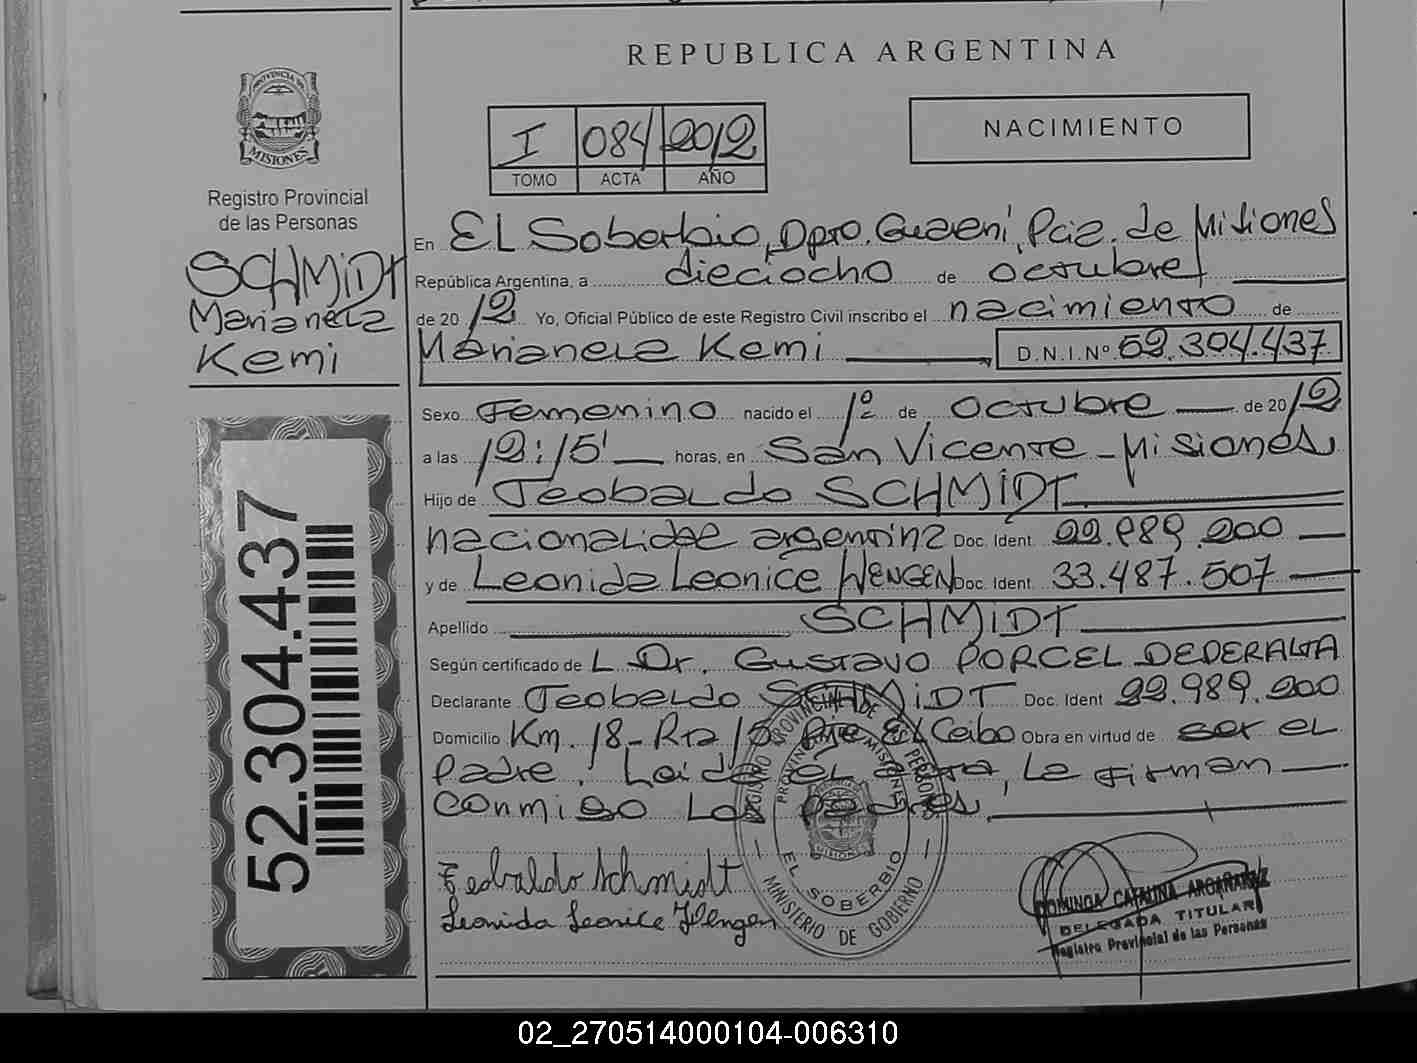 REPUBLICA ARGENTINA
PROVINCIA DE
MISIONES
Registro Provincial
de las Personas
SCHMIDT
Marianela
Kemi
52.304.437
I 084 2012
TOMO ACTA AÑO
NACIMIENTO
En EL Soberbio, Dpto. Guaraní, Pcia. de Misiones
República Argentina, a dieciocho de octubre
de 2012 Yo, Oficial Público de este Registro Civil inscribo el nacimiento de
Marianela Kemi D.N.I.Nº 52.304.437
Sexo Femenino nacido el 1º de octubre de 2012
a las 12:15' horas, en San Vicente - Misiones
Hijo de Teobaldo SCHMIDT
nacionalidad argentina Doc. Ident. 22.989.200
y de Leonida Leonice HENGEN Doc. Ident. 33.487.507
Apellido SCHMIDT
Según certificado de L Dr. Gustavo PORCEL DEDERALTA
Declarante Teobaldo SCHMIDT Doc. Ident 22.989.200
Domicilio Km. 18 - Rta 13 Pje El Ceibo Obra en virtud de ser el
padre. Leída el acta, la firman
conmigo los padres,
Teobaldo Schmidt
Leonida Leonice Hengen
REGISTRO PROVINCIAL DE LAS PERSONAS
PROVINCIA DE MISIONES
EL SOBERBIO
MINISTERIO DE GOBIERNO
DOMINGA CATALINA ARGAÑARAZ
DELEGADA TITULAR
Registro Provincial de las Personas
02_270514000104-006310